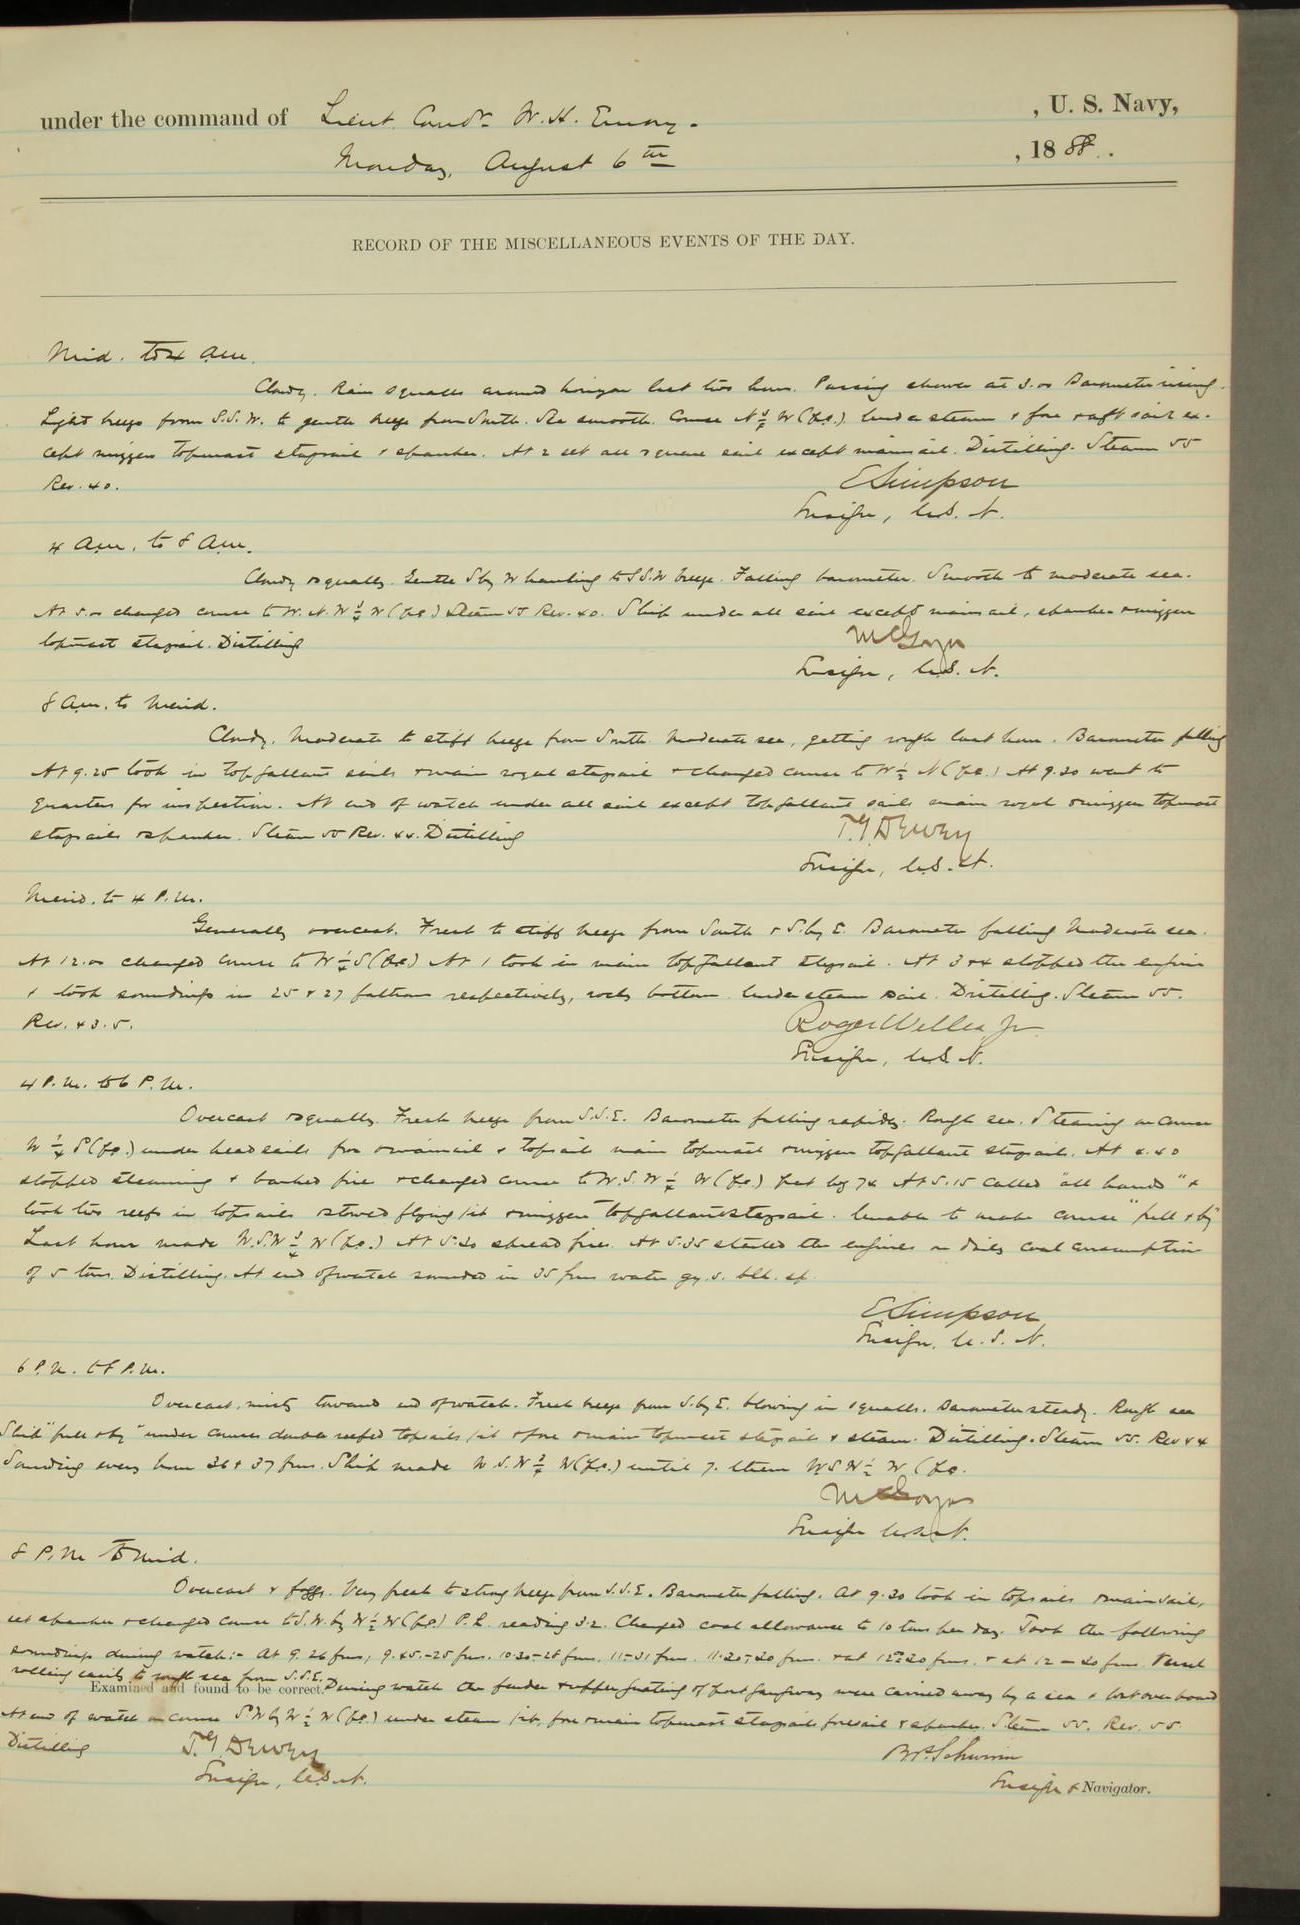 under the command of Lieut. Comdr. W. H. Emory. , U. S. Navy,
Monday, August 6th , 1888.
RECORD OF THE MISCELLANEOUS EVENTS OF THE DAY.
Mid. to 4 A.m.
Cloudy. Rain squalls around horizon last two hours. Passing shower at 3.00 Barometer rising.
Light breeze from S.S.W. to gentle breeze from South. Sea smooth. Course N 3/4 W (p.c.) under steam & fore & aft sail ex-
cept mizzen topmast staysail & spanker. At 2 set all square sail except mainsail. Distilling. Steam 55
Rev. 40.
E Simpson
Ensign, U.S.N.
4 A.m. to 8 A.m.
Cloudy & squally. Gentle S by W hauling to S.S.W breeze. Falling barometer. Smooth to moderate sea.
At 5.00 changed course to W.N.W 1/2 W (p.c.) Steam 55 Rev. 40. Ship under all sail except mainsail, spanker & mizzen
topmast staysail. Distilling
Ensign, U.S.N.
8 A.m. to Merid.
Cloudy. Moderate to stiff breeze from South. Moderate sea, getting rough last hour. Barometer falling
At 9.25 took in topgallant sails & main royal staysail & changed course to W 1/2 N (p.c.) At 9.30 went to
quarters for inspection. At end of watch under all sail except topgallant sails main royal & mizzen topmast
staysails & spanker. Steam 55 Rev. 44. Distilling
T. G. DEWEY
Ensign, U.S.N.
Merid. to 4 P.M.
Generally overcast. Fresh to stiff breeze from South & S. by E. Barometer falling Moderate sea.
At 12.00 changed course to W 1/4 S (p.c.) At 1 took in main topgallant staysail. At 3 & 4 stopped the engine
& took soundings in 25 & 27 fathoms respectively, rocky bottom. Under steam & sail. Distilling. Steam 55.
Rev. 43.5.
Roger Welles, Jr
Ensign, U.S.N.
4 P.M. to 6 P.M.
Overcast & squally. Fresh breeze from S.S.E. Barometer falling rapidly. Rough sea. Steaming on course
W 1/4 S (p.c.) under head sails fore & mainsail & topsails main topmast & mizzen topgallant staysails. At 4.40
stopped steaming & banked fires & changed course to W.S.W 1/4 W (p.c.) Pat log 74 At 5.15 called "all hands" &
took two reefs in topsails stowed flying jib & mizzen topgallant staysail. Unable to make course "full & by"
Last hour made W.S.W 3/4 W (p.c.) At 5.30 spread fires. At 5.35 started the engines on daily coal consumption
of 5 tons. Distilling. At end of watch sounded in 35 fms water gy. s. blk. sp.
E. Simpson
Ensign, U.S.N.
6 P.M. to 8 P.M.
Overcast, misty toward end of watch. Fresh breeze from S. by E. blowing in squalls. Barometer steady. Rough sea
Ship "full & by" under courses double reefed topsails jib & fore & main topmast staysails & steam. Distilling. Steam 55. Rev 44
Sounding every hour 36 & 37 fms. Ship made W.S.W 3/4 W (p.c.) until 7. then W.S.W 1/2 W (p.c.
Ensign U.S.N.
8 P.M to Mid.
Overcast & foggy. Very fresh to strong breeze from S.S.E. Barometer falling. At 9.30 took in topsails & mainsail,
set spanker & changed course to S.W. by W 1/2 W (p.c.) P.L. reading 32. Changed coal allowance to 10 tons per day. Took the following
soundings during watch:- At 9. 26 fms; 9.45.-25 fms. 10.30-28 fms. 11-31 fms. 11.20-30 fms. & at 12 - 20 fms. Vessel
rolling easily to rough sea from S.S.E. During watch the fender & upper grating of port gangway were carried away by a sea & lost overboard
Examined and found to be correct.
At end of watch on course S W by W 1/2 W (p.c.) under steam jib, fore & main topmast staysails foresail & spanker. Steam 55. Rev. 55
Distilling
T. G. DEWEY
Ensign, U.S.N.
Ensign & Navigator.